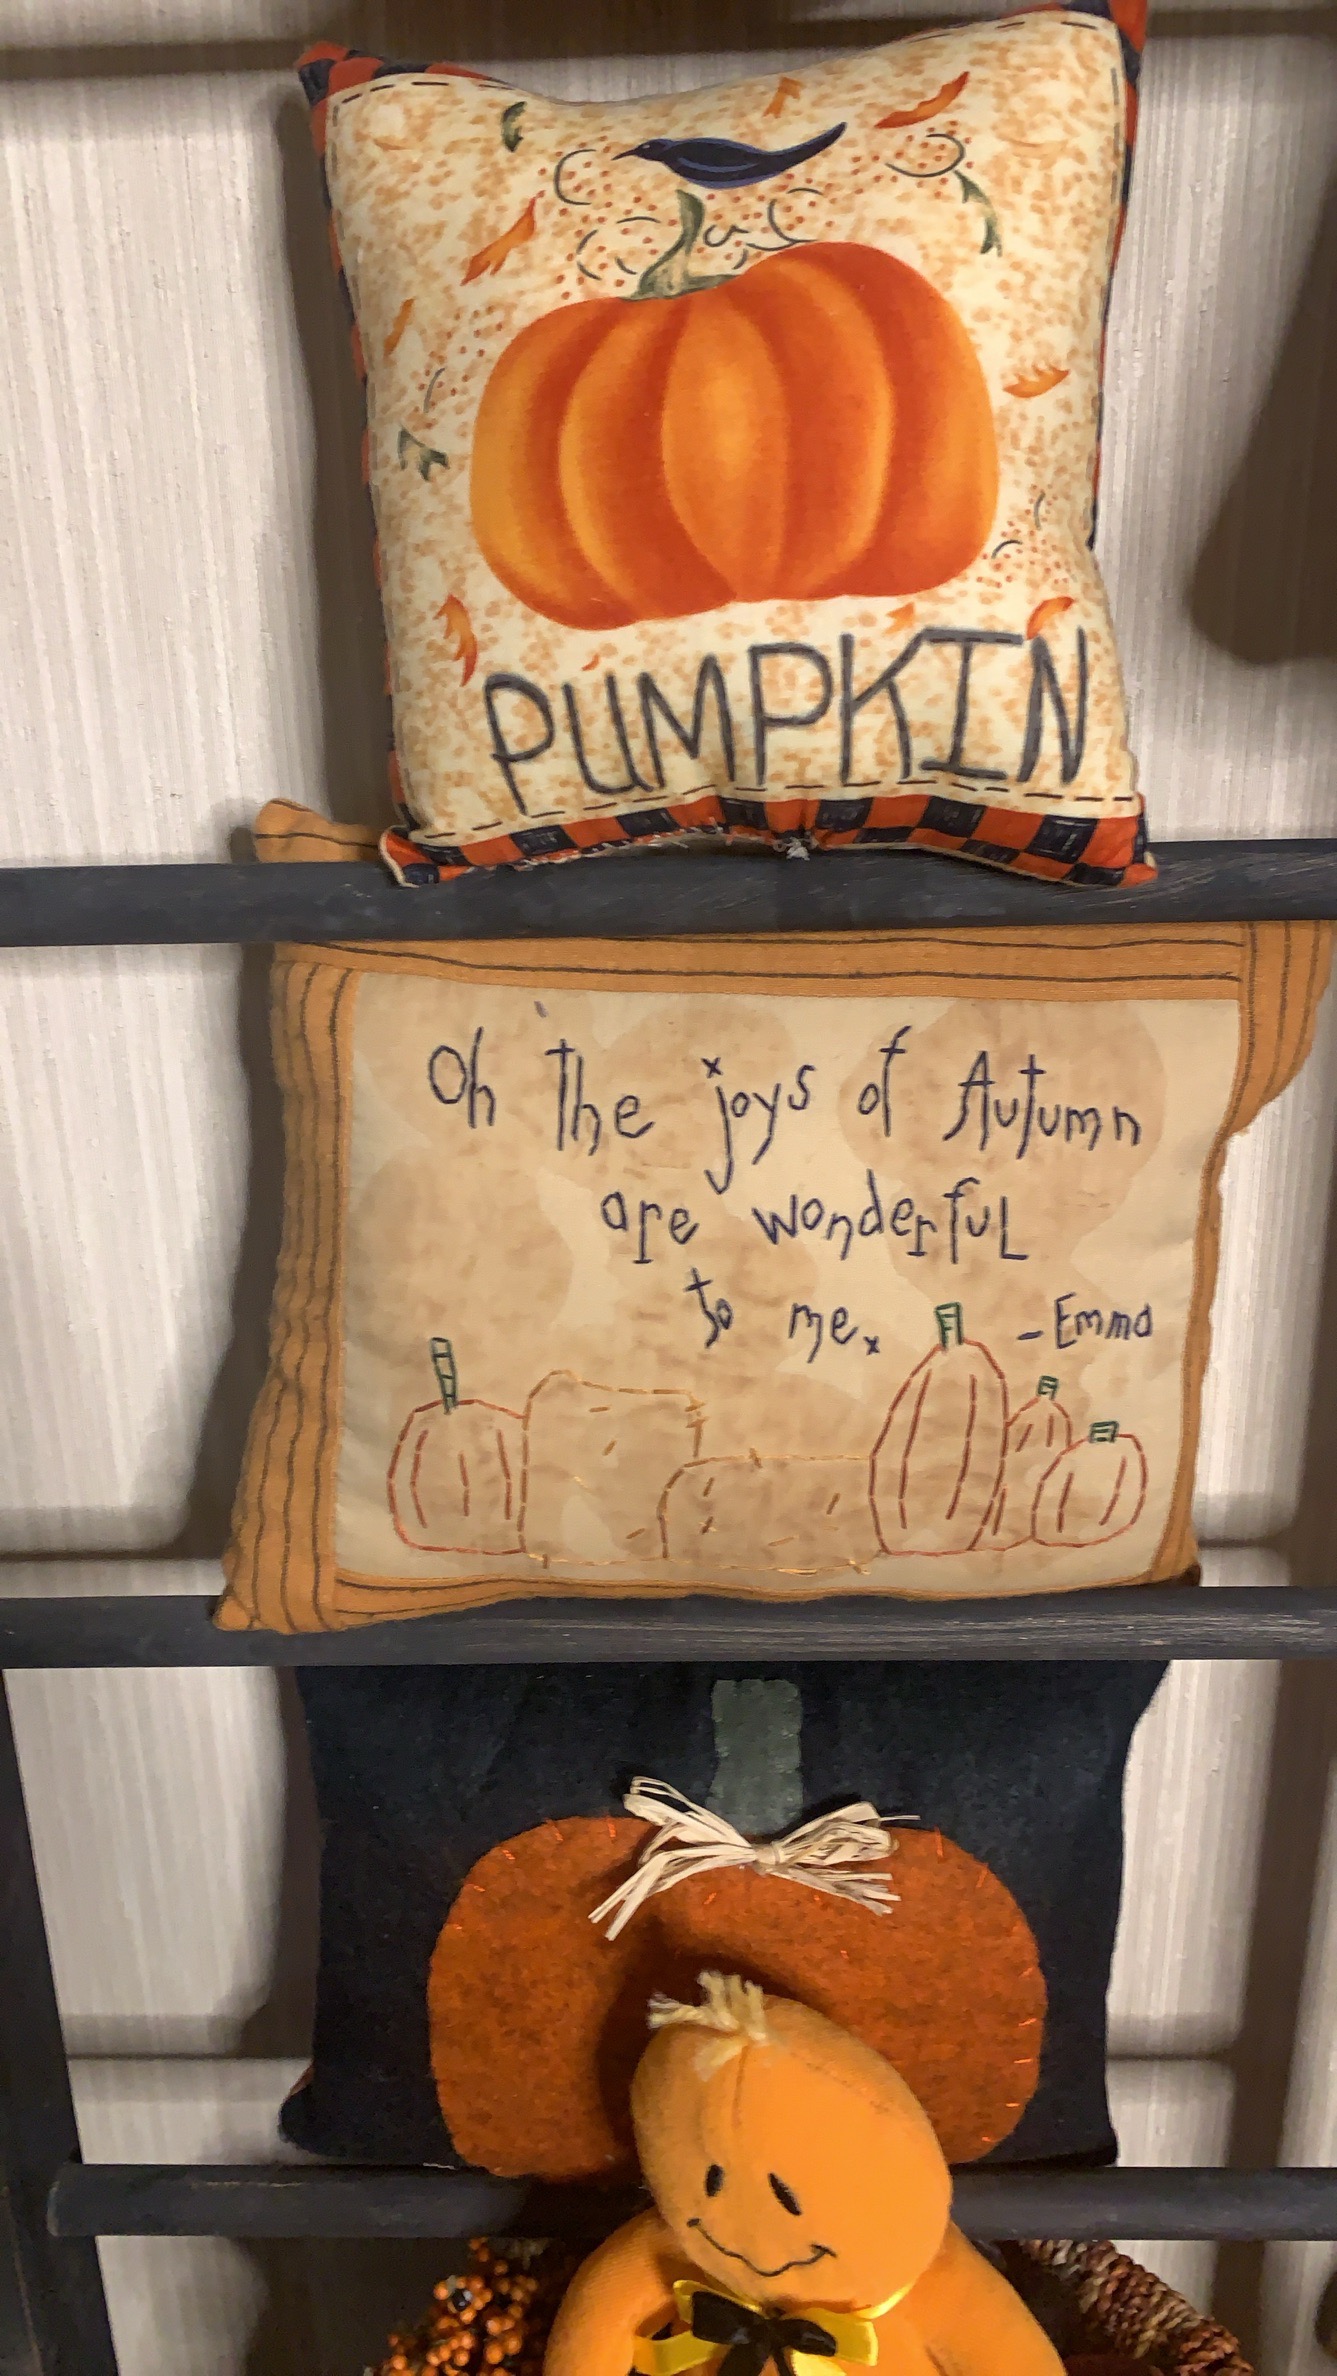 PUMPKIN
Oh the joys of Autumn
are wonderful
to me.
-Emma